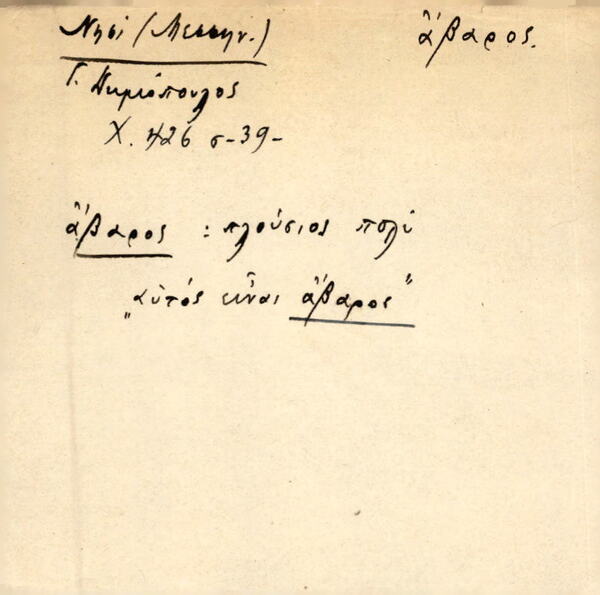 Νησί (Μεσσην.)
ἄβαρος.
Γ.
Χ. 426 σ-39-
ἄβαρος : πλούσιος πολύ
„αὐτός εἶναι ἄβαρος"